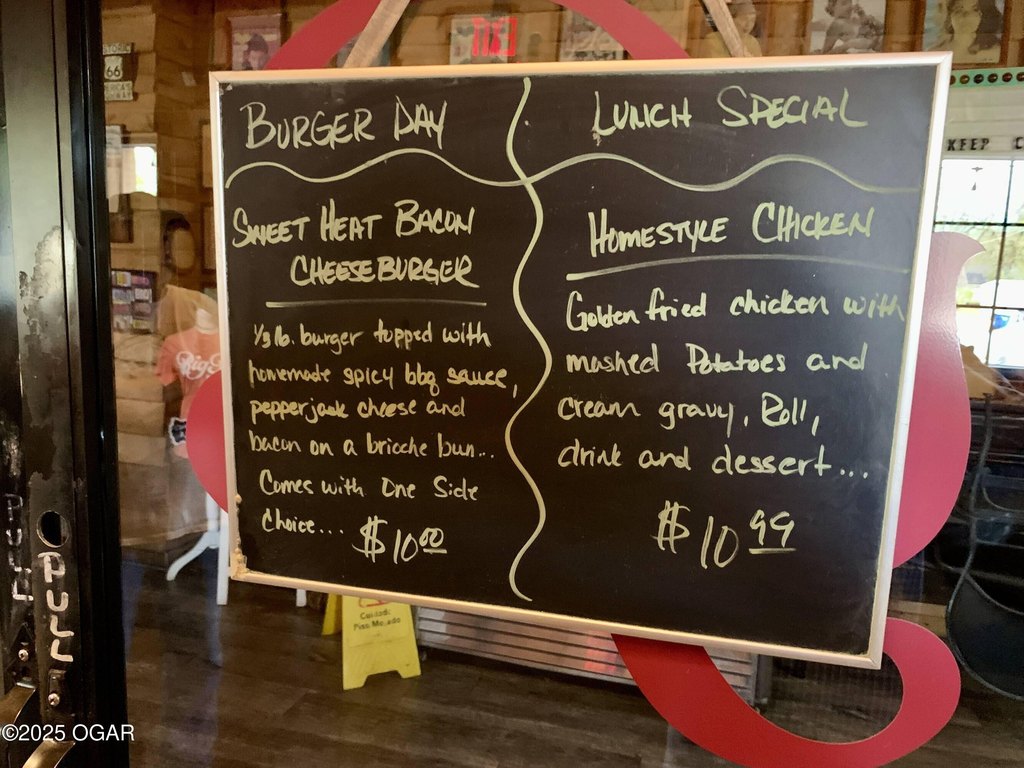 BURGER DAY
SWEET HEAT BACON
CHEESEBURGER
1/3 lb. burger topped with
homemade spicy bbq sauce,
pepperjack cheese and
bacon on a brioche bun...
Comes with One Side
Choice... $10.00
LUNCH SPECIAL
HOMESTYLE CHICKEN
Golden fried chicken with
mashed Potatoes and
cream gravy, Roll,
drink and dessert...
$10 99
66
KEEP
PULL
PULL
Cuidado
Piso Mojado
©2025 OGAR